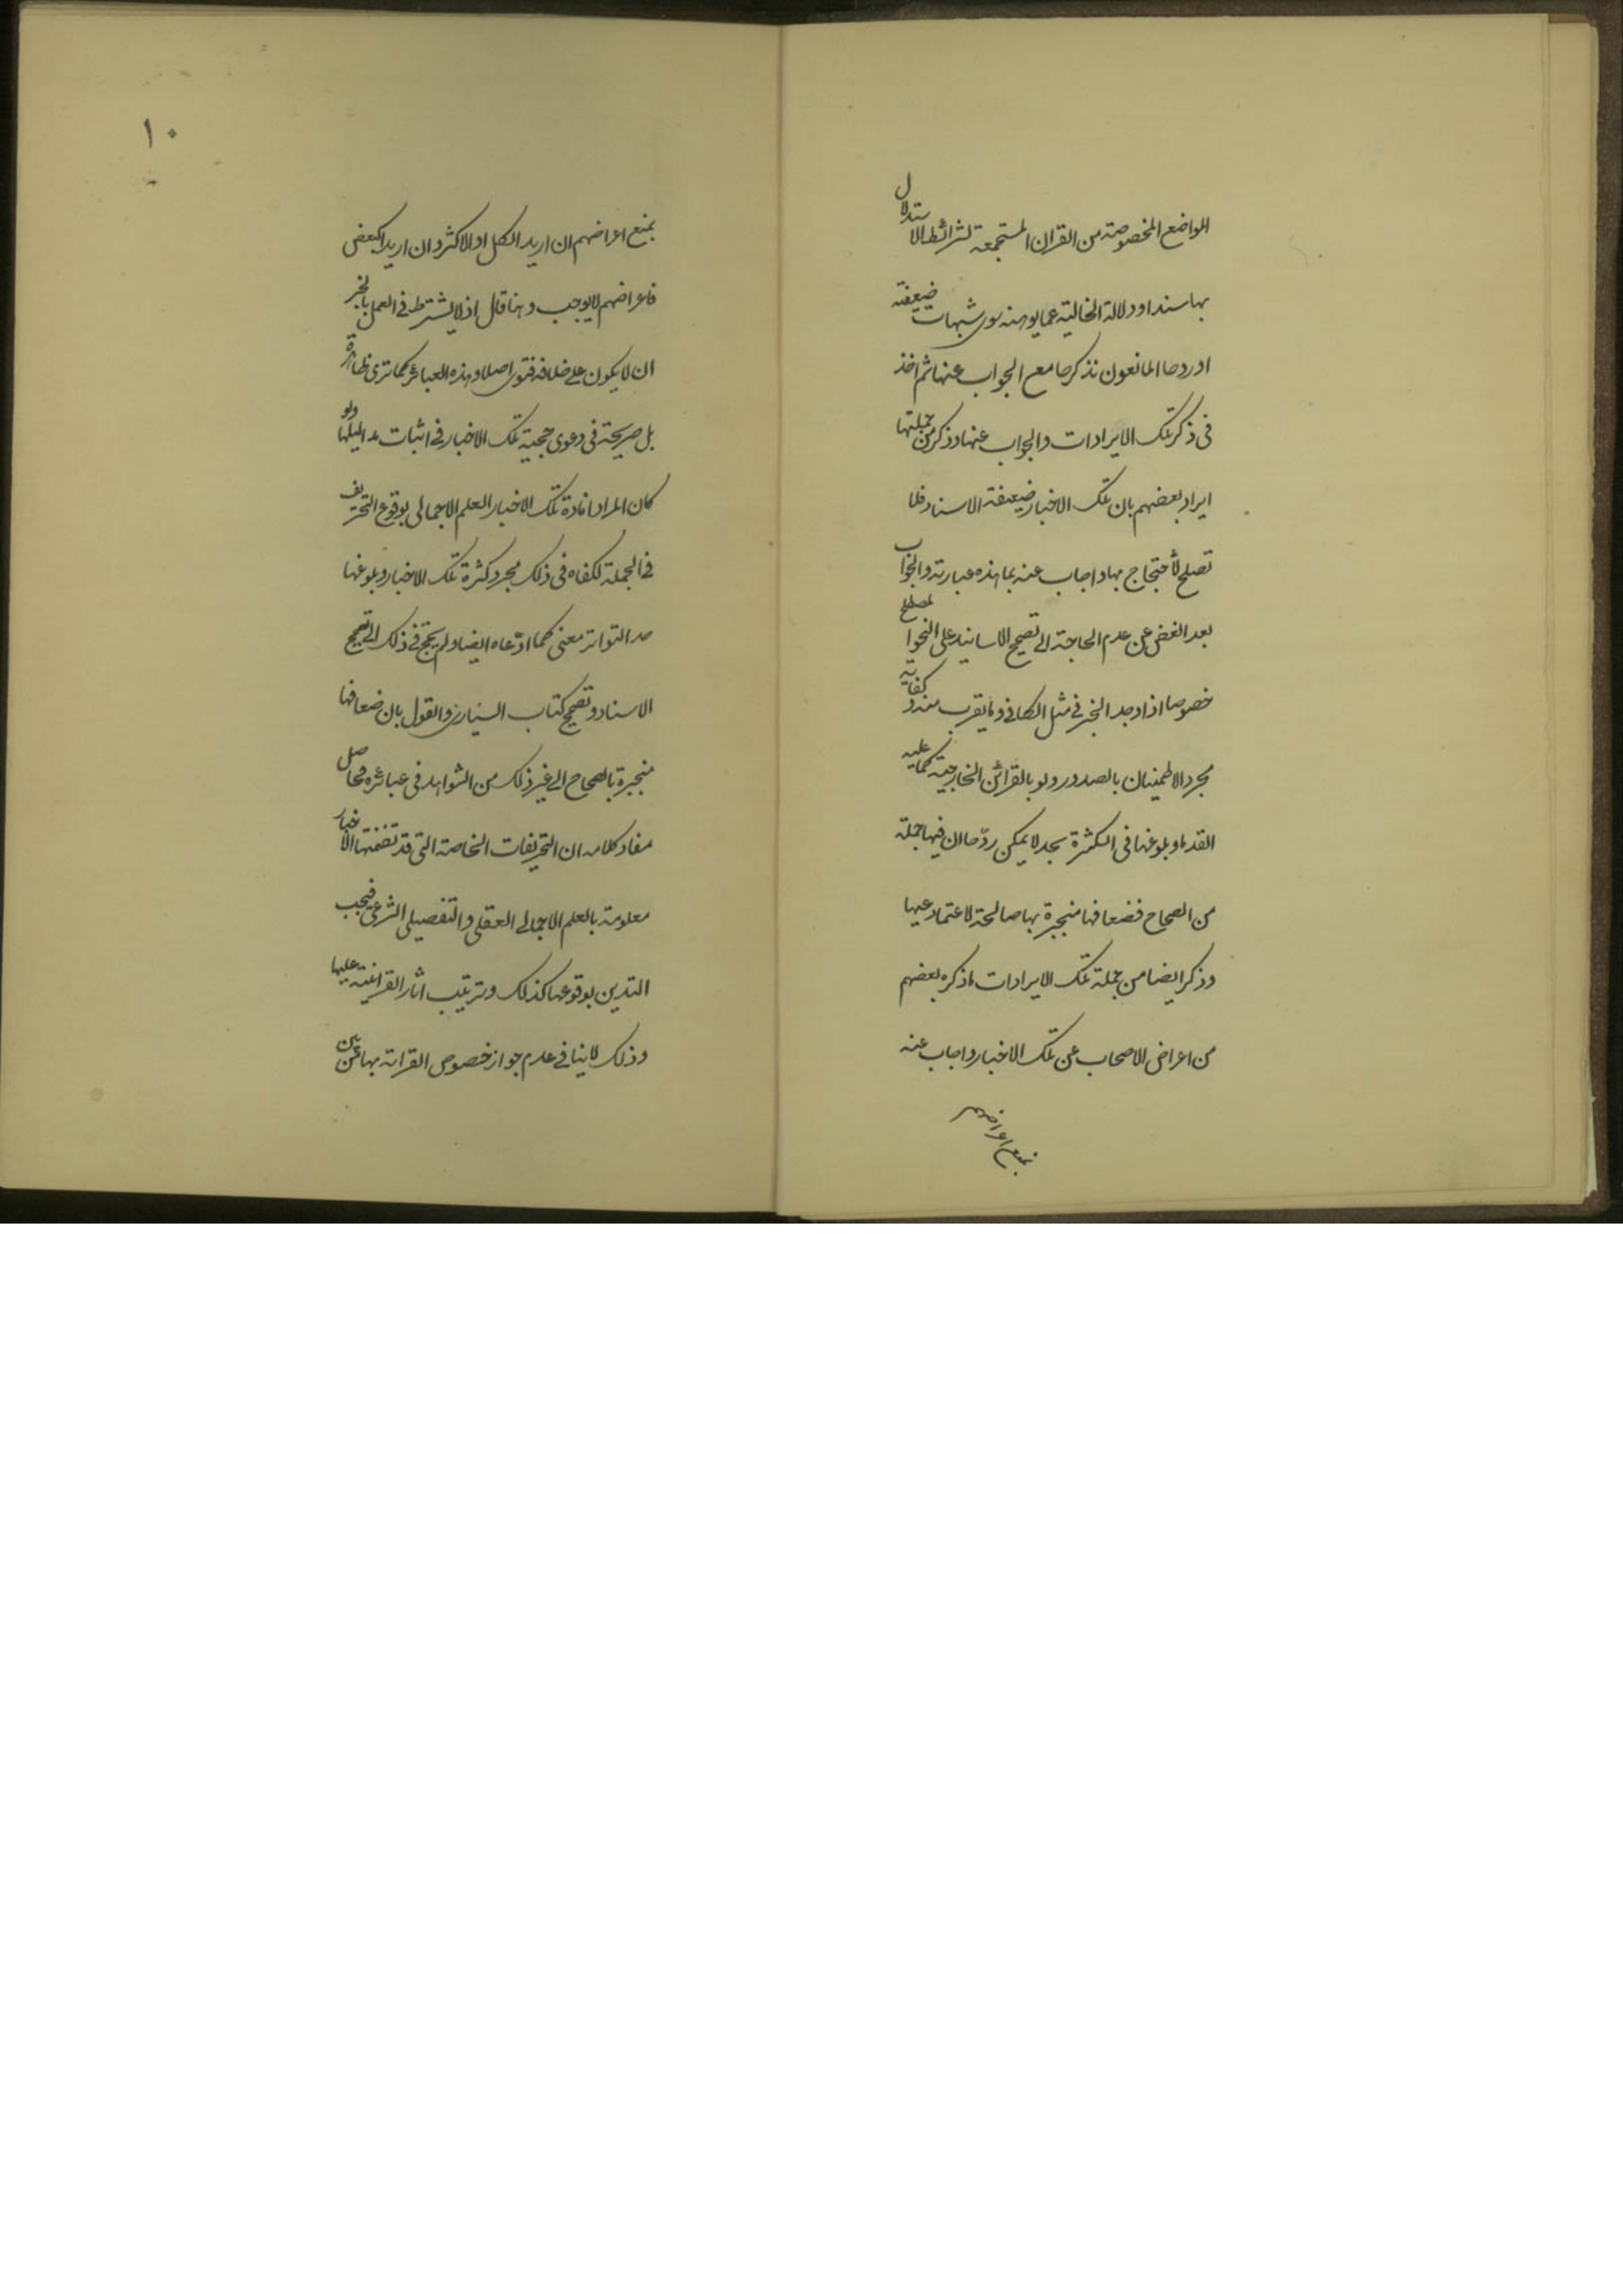 المواضع المخصوصة من القران المستجمعة لشرائط الاستدلال
بها سندا ودلالة الخالية عما يوهنه سوى شبهات ضعيفة
اوردها المانعون نذكرها مع الجواب عنها ثم اخذ
فى ذكر تلك الايرادات والجواب عنها وذكر من جملتها
ايراد بعضهم بان تلك الاخبار ضعيفة الاسناد فلا
تصلح لأحتجاج بها واجاب عنه بما هذه عبارته والجواب
بعد الغض عن عدم الحاجة الى تصحيح الاسانيد على النحو المصطلح
خصوصا اذا وجد الخبر فى مثل الكافى وما يقرب منه وكفاية
مجرد الاطمينان بالصدور ولو بالقرائن الخارجية كما عليه
القدماء وبلوغها فى الكثرة بحد لا يمكن ردّها ان فيها جملة
من الصحاح فضعافها منجبرة بها صالحة لاعتماد عليها
وذكر ايضا من جملة تلك الايرادات ما ذكره بعضهم
من اعراض الاصحاب عن تلك الاخبار واجاب عنه
بمنع اعراضهم
١٠
بمنع اعراضهم ان اريد الكل او الاكثر وان اريد البعض
فاعراضهم لا يوجب وهنا قال اذ لا يشترط فى العمل بالخبر
ان لا يكون على خلافه فتوى اصلا وهذه العبائر كما ترى ظاهرة
بل صريحة فى دعوى حجية تلك الاخبار فى اثبات مداليلها ولو
كان المراد افادة تلك الاخبار العلم الاجمالى بوقوع التحريف
فى الجملة لكفاه فى ذلك مجرد كثرة تلك الاخبار وبلوغها
حد التواتر معنى كما ادّعاه ايضا ولم يحتج فى ذلك الى تصحيح
الاسناد وتصحيح كتاب السيارى والقول بان ضعافها
منجبرة بالصحاح الى غير ذلك من الشواهد فى عبائره وحاصل
مفاد كلامه ان التحريفات الخاصة التى قد تضمنتها الاخبار
معلومة بالعلم الاجمالى العقلى والتفصيلى الشرعى فيجب
التدين بوقوعها كذلك وترتيب اثار القرانية عليها
وذلك لا ينافى عدم جواز خصوص القرائة بها